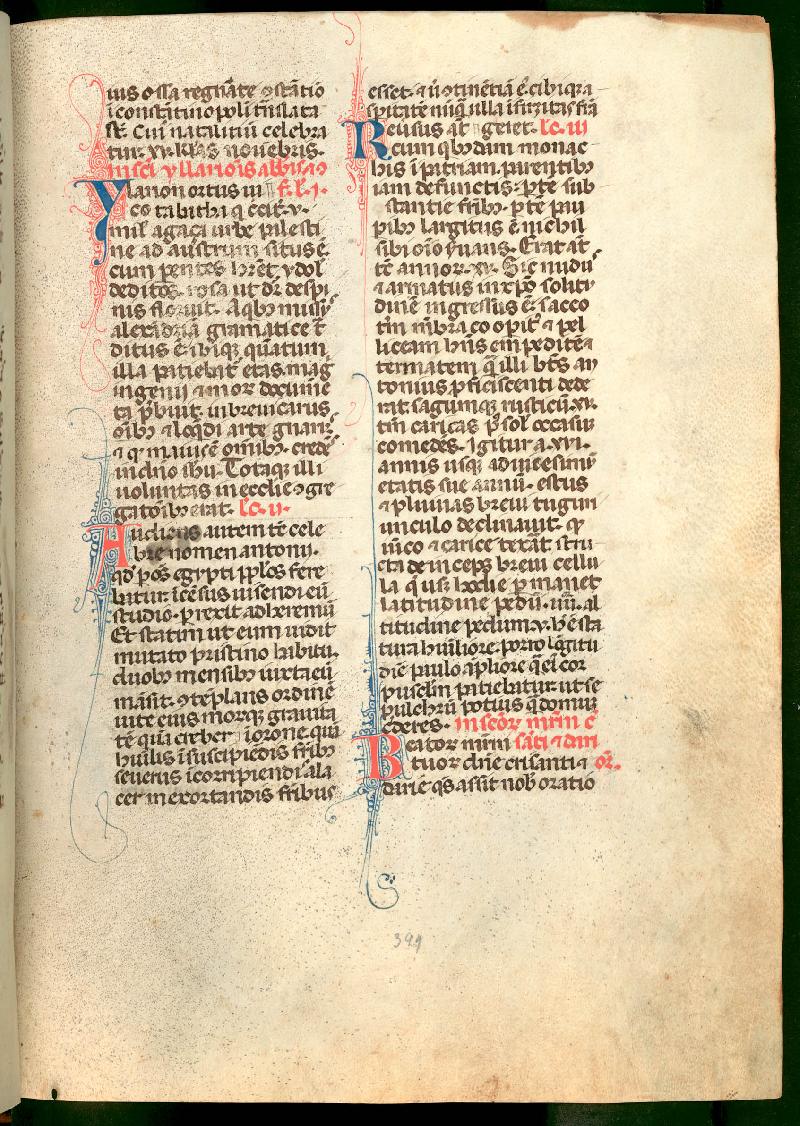 ius ossa regnāte ↄstātio
ī constātinopoli trāslata
sūt. Cui natalitiū celebra
tur. xv. kls novēbris.
In sc̄i yllariois abb̄is
Ylarion ortus in f. l. i.
co tabitha q̄
mil agaça urbe palesti
ne ad austrum situs ē.
cum pentes hr̄et ydol
deditos. rosa ut dr̄ de spi
nis floruit. A qb; missꝰ
alexādria gramatice t̄
ditus ē. ibiq; q̄ntum
illa patiebat᷒ etas. mag
ingenii ⁊ mor documē
ta p̄buit. in brevi carus
oīb; ⁊ loq̄di arte gnarꝰ
⁊ qͥ maiꝰ ē omīb;. crede
in dno ihu. Totaq; illi
voluntas in ecclie ↄgre
gatōib; erat. lc̄. ii.
Audiens autem tē cele
bre nomen antonii.
qd̄ p̄ oēs egypti pplōs fere
batur. īcēsus visendi eū
studio. p̄rexit ad heremū
Et statim ut eum vidit
mutato pristino habitu.
duob; mensib; iuxta eū
māsit. ↄtēplans ordinē
vite eius morūq; gravita
tē. qͣm creber ī orōne. qͣm
humilis ī suscipiēdis frīb;
severus ī corripiendi. ala
cer in exortandis fribus
esset. ⁊ ut ↄtinētiā ē. cibiq; a
spitatē nūq̄ ulla īfirmitas frā
Reversus aūt geret. lc̄. iii
cum qb;dam monac
his ī patriam. parentib;
iam defunctis. p̄te sub
stantie frīb;. p̄te pau
pib; largitus ē. nichil
sibi oīo ẜvans. Erat aūt
tē annor. xv. Sic nudꝰ
⁊ armatus in xpo solitu
dinē ingressus ē. sacco
tm̄ mēbra coop̄it᷒ ⁊ pel
liceam hn̄s ependitē ⁊
termatem q̄ illi bt̄s an
tonius p̄ficiscenti dede
rat. sagumq; rusticū. xv.
tm̄ caricas p̄ sol᷒ occasū
comedēs. Igitur a. xvi.
annis usq; ad vicesimū
etatis sue annū. estus
⁊ pluvias brevi tuguri
unculo declinavit. qͥ
iūco ⁊ carice texāt. stru
cta deinceps brevi cellu
la q̄ usq; hodie p̄manet
latitudine pedū. iiii. al
titudine pedum. v. h̄ ē sta
tura humiliore. porro lōgitu
die paulo āpliore q̄ ei᷒ cor
pusclm̄ patiebatur. ut se
pulchrū potius q̄ domū
cderes. In scōr mr̄m c
Beator mr̄m sāti ⁊ dari
tuor dn̄e crisanti ⁊ or̄.
darie qs̄ assit nob᷒ oratio
394